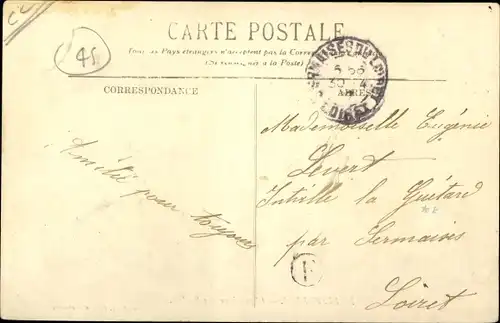 CARTE POSTALE
Tous les Pays étrangers n'acceptent pas la Corres
(Se renseigner à la Poste)
45
SERMAISES DU LOIRET
5 *55
30 4
LOIRET
CORRESPONDANCE
ADRES
Mademoiselle Eugénie
Levert
Intville la Guétard
par Sermaises
Loiret
Amitié pour toujours
E